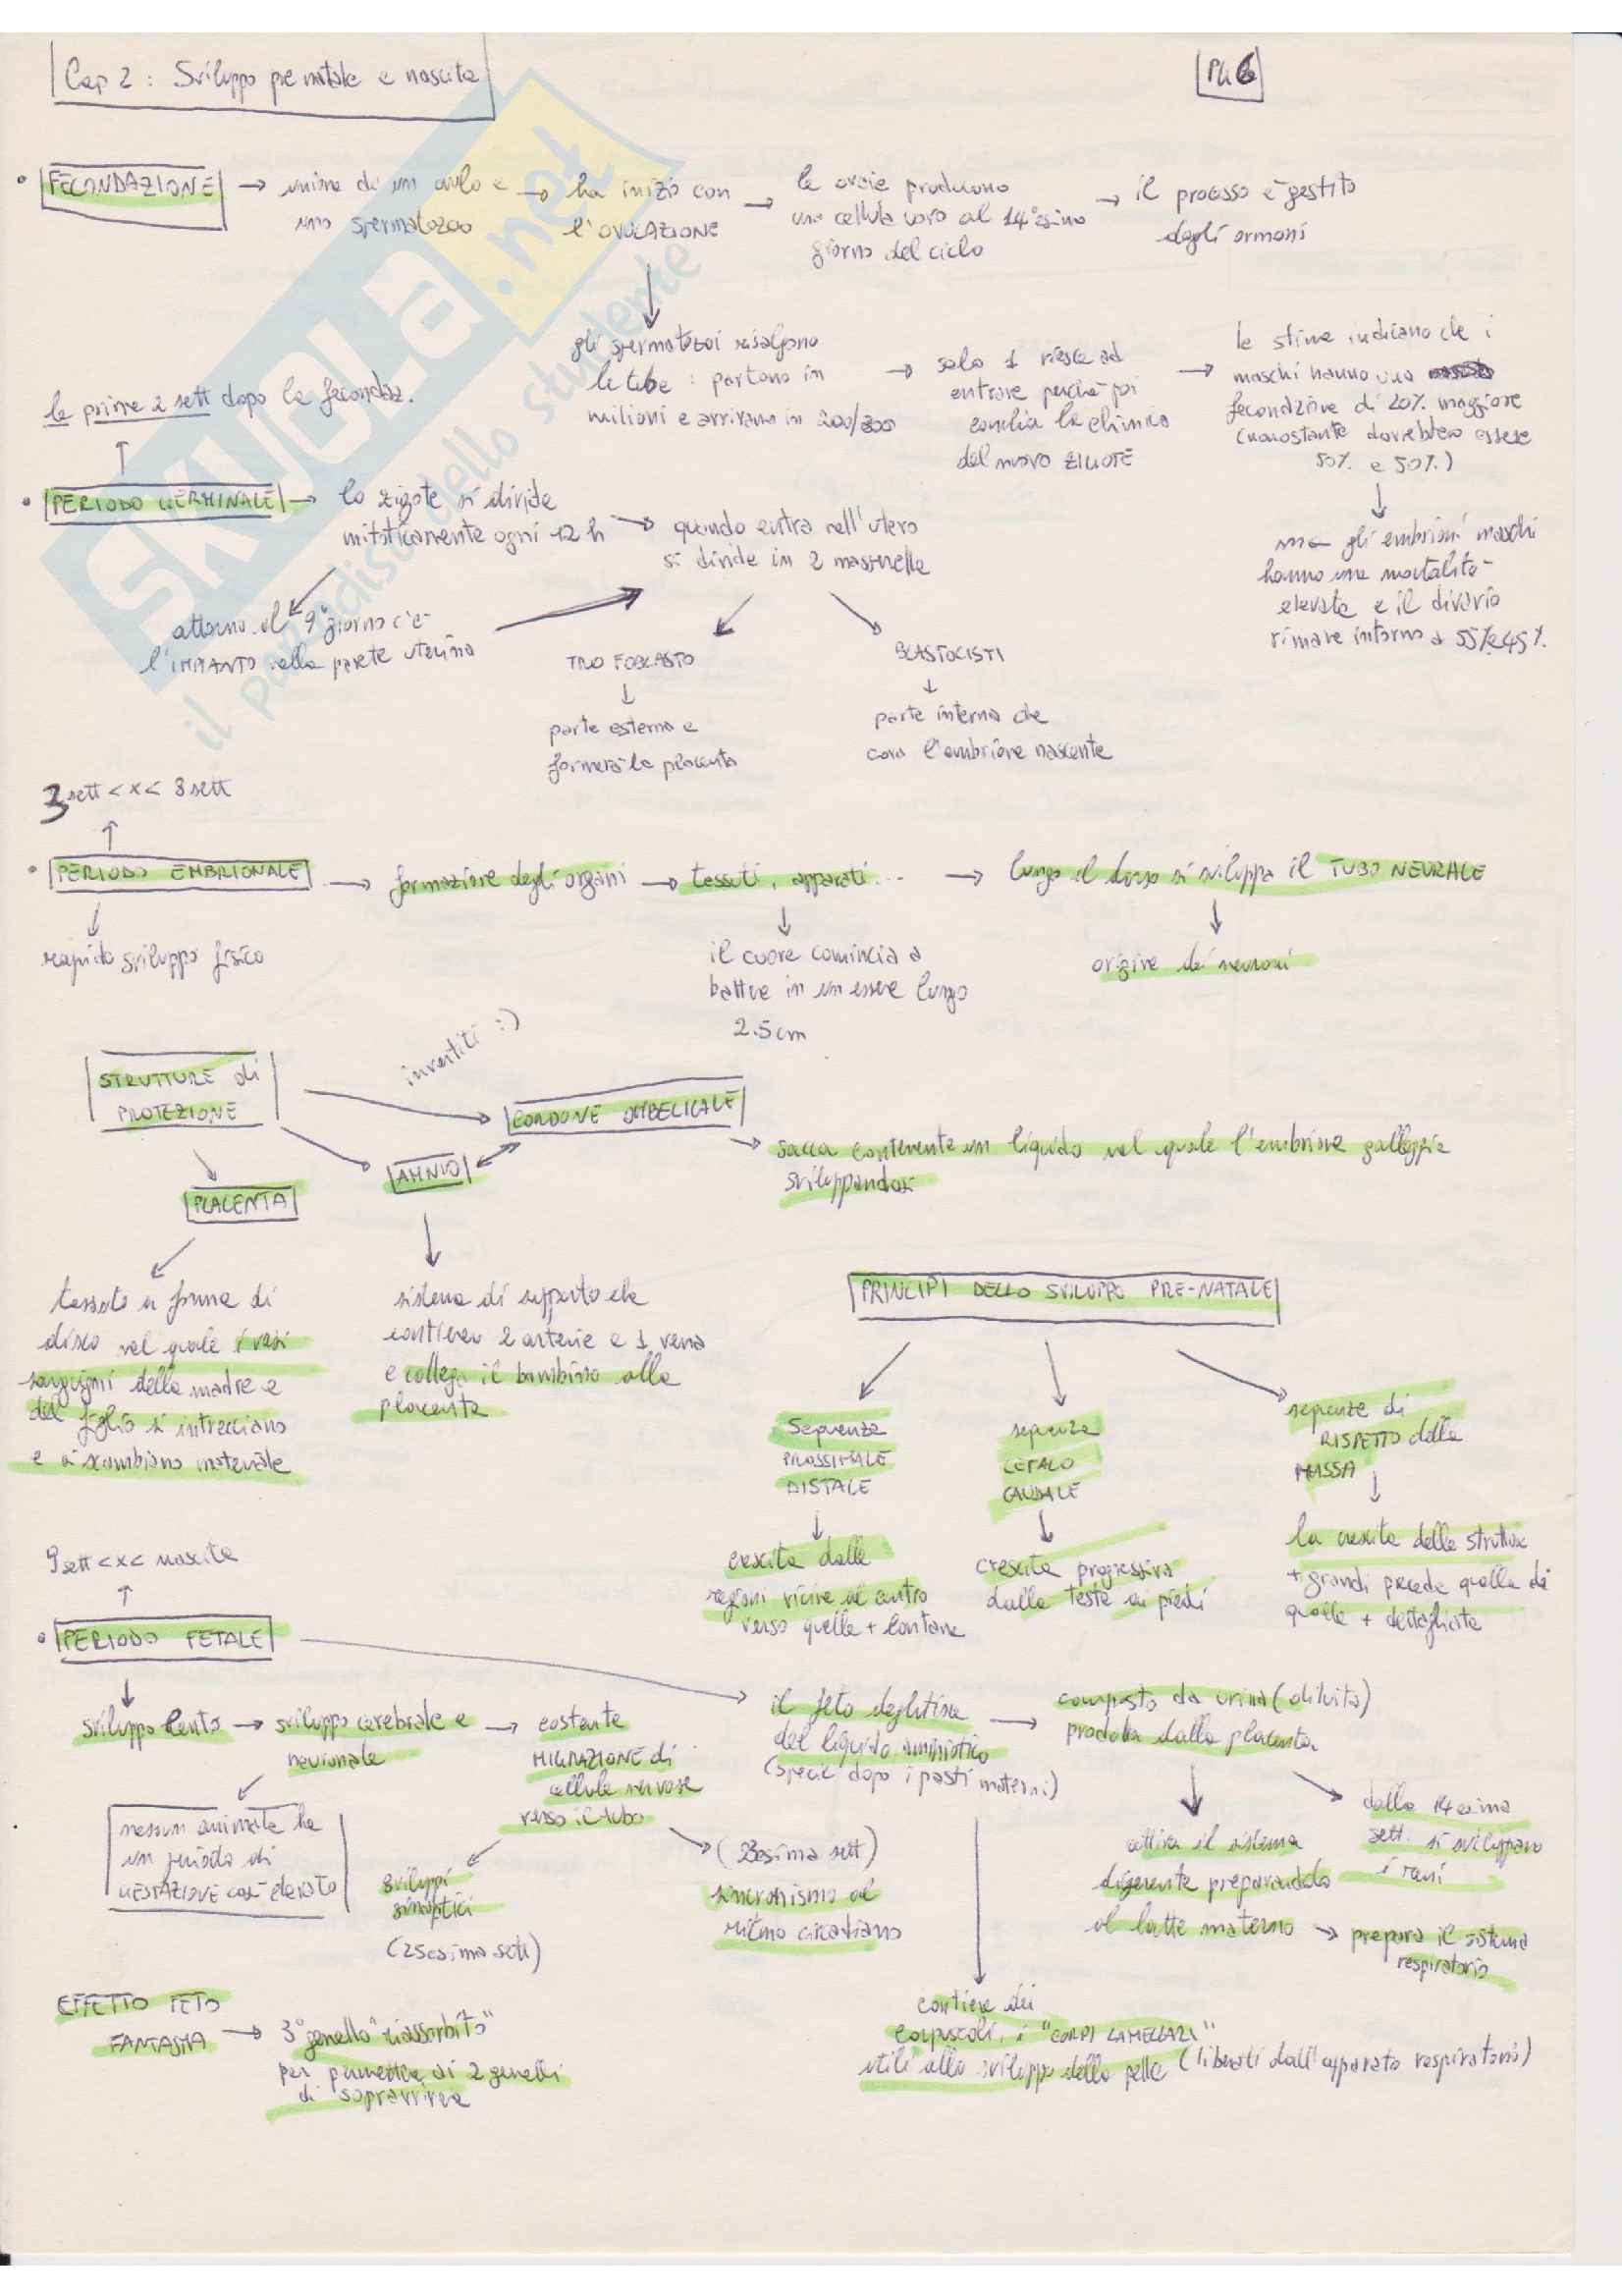 Cap 2 : Sviluppo pre natale e nascita
PG 6
• FECONDAZIONE → unione di un ovulo e uno spermatozoo → ha inizio con l'OVULAZIONE → le ovaie producono una cellula uovo al 14°esimo giorno del ciclo → il processo è gestito dagli ormoni
gli spermatozoi risalgono
le tube : partono in
milioni e arrivano in 200/300
→ solo 1 riesce ad
entrare perché poi
cambia la chimica
del nuovo ZIGOTE
→ le stime indicano che i
maschi hanno una
fecondazione di 20% maggiore
(nonostante dovrebbero essere
50% e 50%)
ma gli embrioni maschi
hanno una mortalità
elevata e il divario
rimane intorno a 55% e 45%.
le prime 2 sett dopo la fecondaz.
• PERIODO GERMINALE → lo zigote si divide
mitoticamente ogni 12 h
→ quando entra nell'utero
si divide in 2 masserelle
attorno al 9° giorno c'è
l'IMPIANTO nella parete uterina
TROFOBLASTO
parte esterna e
formerà la placenta
BLASTOCISTI
parte interna che
cova l'embrione nascente
3 sett < x < 8 sett
• PERIODO EMBRIONALE → formazione degli organi → tessuti, apparati... → lungo il dorso si sviluppa il TUBO NEURALE
rapido sviluppo fisico
il cuore comincia a
battere in un essere lungo
2.5 cm
origine dei neuroni
STRUTTURE di
PROTEZIONE
invertiti :)
CORDONE OMBELICALE
→ sacca contenente un liquido nel quale l'embrione galleggia
sviluppandosi
AMNIO
PLACENTA
tessuto a forma di
disco nel quale i vasi
sanguigni della madre e
del figlio si intrecciano
e si scambiano materiale
sistema di supporto che
contiene 2 arterie e 1 vena
e collega il bambino alla
placenta
PRINCIPI DELLO SVILUPPO PRE-NATALE
Sequenza
PROSSIMALE
DISTALE
crescita dalle
regioni vicine al centro
verso quelle + lontane
sequenza
CEFALO
CAUDALE
crescita progressiva
dalla testa ai piedi
sequenze di
RISPETTO della
MASSA
la crescita delle strutture
+ grandi precede quella di
quelle + dettagliate
9 sett < x < nascita
• PERIODO FETALE
sviluppo lento → sviluppo cerebrale e
neuronale
→ costante
MIGRAZIONE di
cellule nervose
verso il tubo
nessun animale ha
un periodo di
GESTAZIONE così elevato
sviluppi
sinaptici
(25esima sett)
sincronismo al
ritmo circadiano
il feto deglutisce
del liquido amniotico
(specie dopo i pasti materni)
→ composto da urina (diluita)
prodotta dalla placenta
attiva il sistema
digerente preparandolo
al latte materno
dalla 14esima
sett. si sviluppano
i reni
→ prepara il sistema
respiratorio
contiene dei
corpuscoli, i "CORPI LAMELLARI"
utili allo sviluppo della pelle (liberati dall'apparato respiratorio)
EFFETTO FETO
FANTASMA → 3° gemello "riassorbito"
per permettere ai 2 gemelli
di sopravvivere
SKUOLA.net
il paradiso dello studente